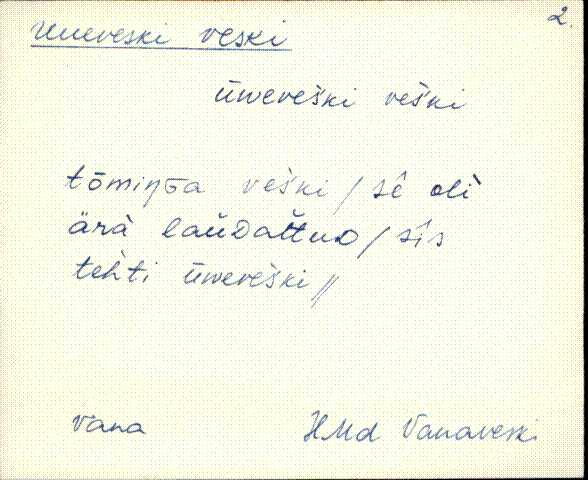 2.
Uueveski veski
ūwereški veški
tōmiŋɢa veški / sê olì
ärà laùDattuD / sîs
tehti ūwereški //
Vana
HMd Vanaveski